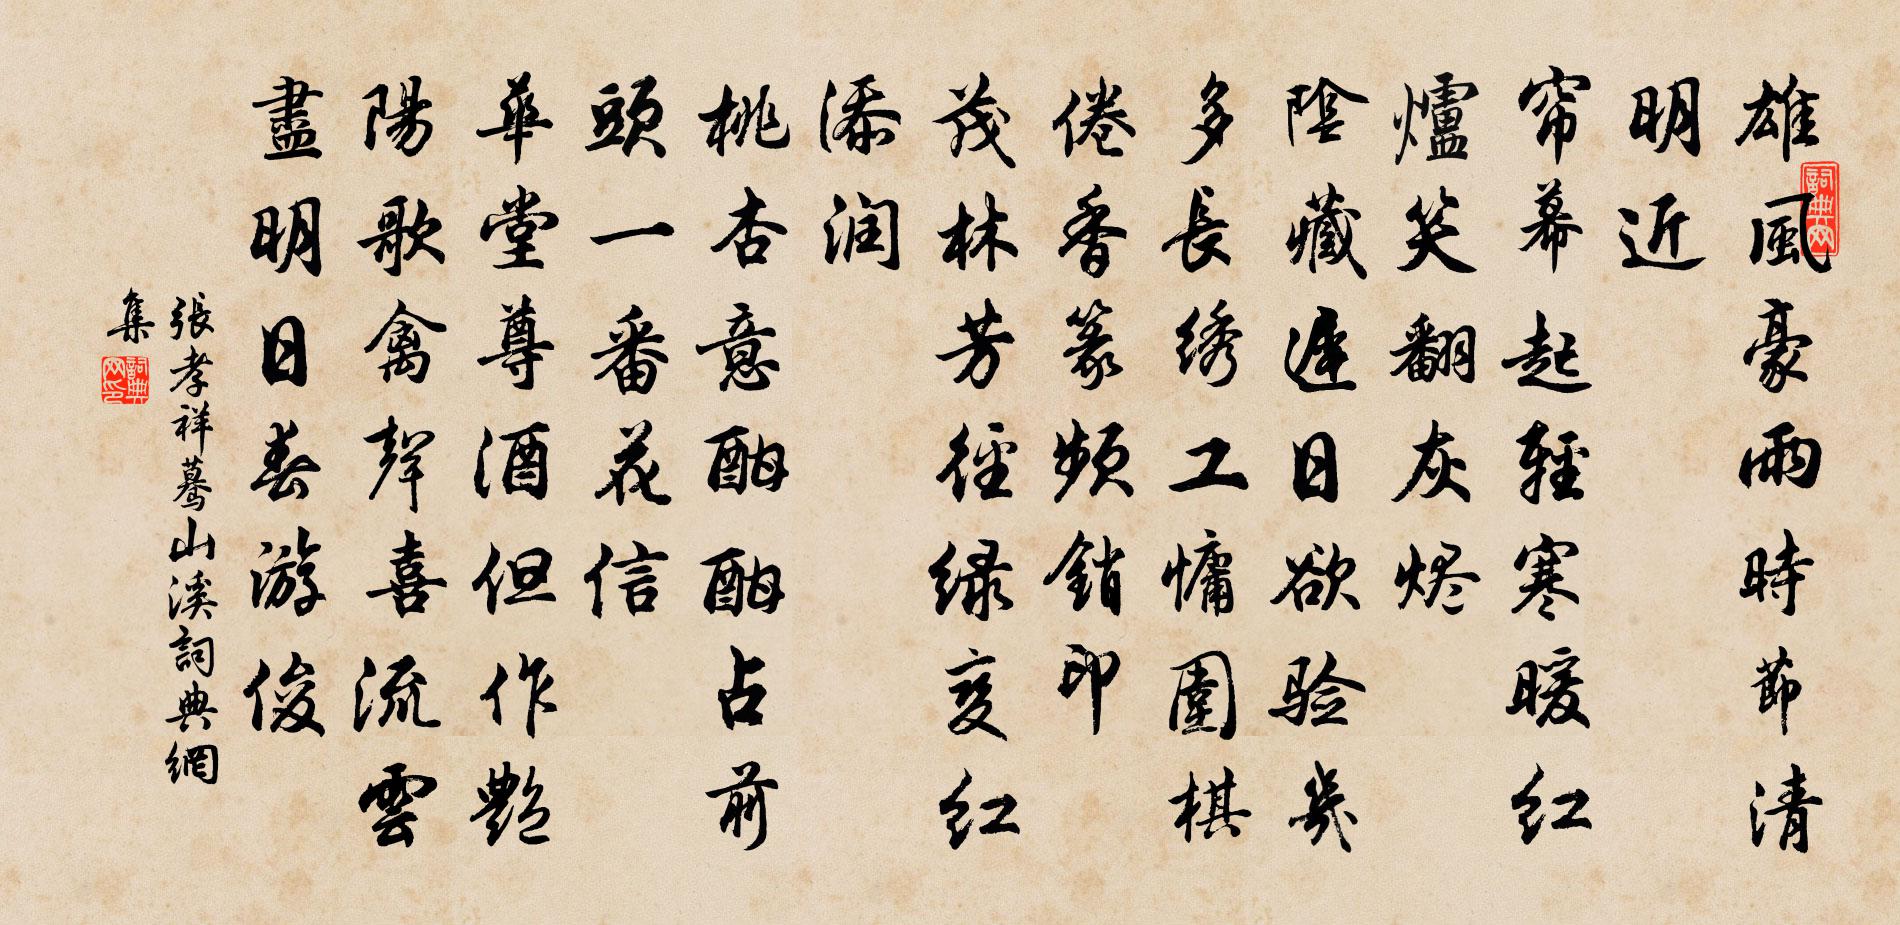 雄風豪雨時節清
明近
帘幕起輕寒暖红
爐笑翻灰烬
陰藏遲日欲验幾
多長绣工慵圍棋
倦香篆频銷印
茂林芳徑绿变红
添润
桃杏意酣酣占前
頭一番花信
華堂尊酒但作艷
陽歌禽聲喜流雲
盡明日春游俊
張孝祥蓦山溪詞典網
集
詞典网
詞典网印